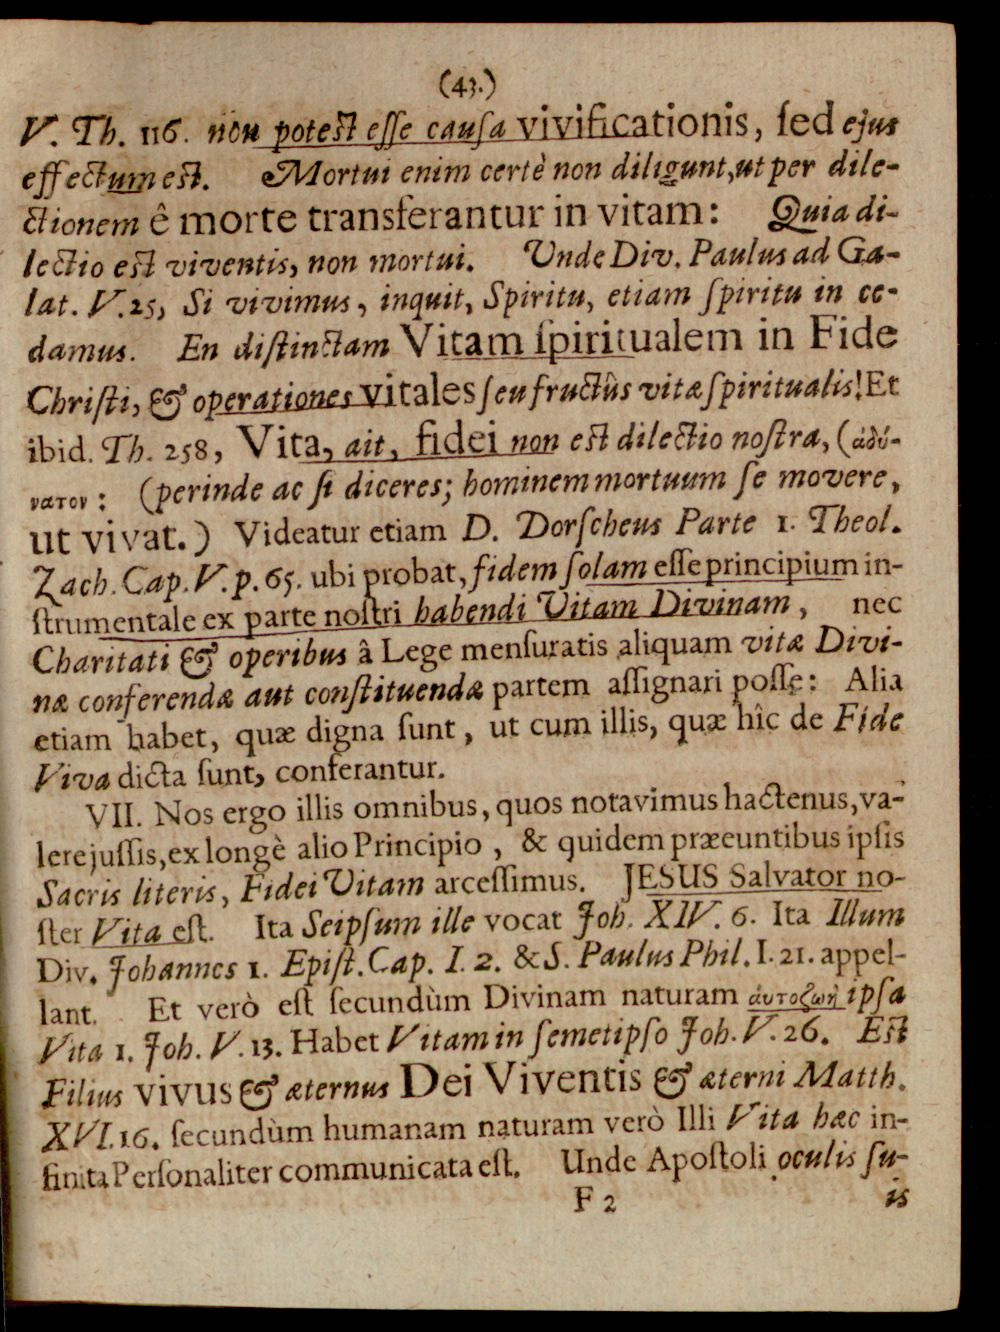 (43.)
V. Th. 116. non potest esse causa vivificationis, sed ejus
effectum est. Mortui enim certè non diligunt, ut per dile-
ctionem ê morte transferantur in vitam: Quia di-
lectio est viventis, non mortui. Unde Div. Paulus ad Ga-
lat. V. 25, Si vivimus, inquit, Spiritu, etiam spiritu in ce-
damus. En distinctam Vitam spiritualem in Fide
Christi, & operationes vitales seu fructûs vitæ spiritualis! Et
ibid. Th. 258, Vita, ait, fidei non est dilectio nostra, (ἀδύ-
νατον: (perinde ac si diceres; hominem mortuum se movere,
ut vivat.) Videatur etiam D. Dorscheus Parte 1. Theol.
Zach. Cap. V. p. 65. ubi probat, fidem solam esse principium in-
strumentale ex parte nostri habendi Vitam Divinam, nec
Charitati & operibus â Lege mensuratis aliquam vitæ Divi-
næ conferendæ aut constituendæ partem assignari posse: Alia
etiam habet, quæ digna sunt, ut cum illis, quæ hîc de Fide
Viva dicta sunt, conferantur.
VII. Nos ergo illis omnibus, quos notavimus hactenus, va-
lere jussis, ex longè alio Principio, & quidem præeuntibus ipsis
Sacris literis, Fidei Vitam arcessimus. JESUS Salvator no-
ster Vita est. Ita Seipsum ille vocat Joh. XIV. 6. Ita Illum
Div. Johannes 1. Epist. Cap. I. 2. & S. Paulus Phil. I. 21. appel-
lant. Et verò est secundùm Divinam naturam ἀυτοζωὴ ipsa
Vita 1. Joh. V. 13. Habet Vitam in semetipso Joh. V. 26. Est
Filius vivus & æternus Dei Viventis & æterni Matth.
XVI. 16. secundùm humanam naturam verò Illi Vita hæc in-
finita Personaliter communicata est. Unde Apostoli oculis su-
F 2 is